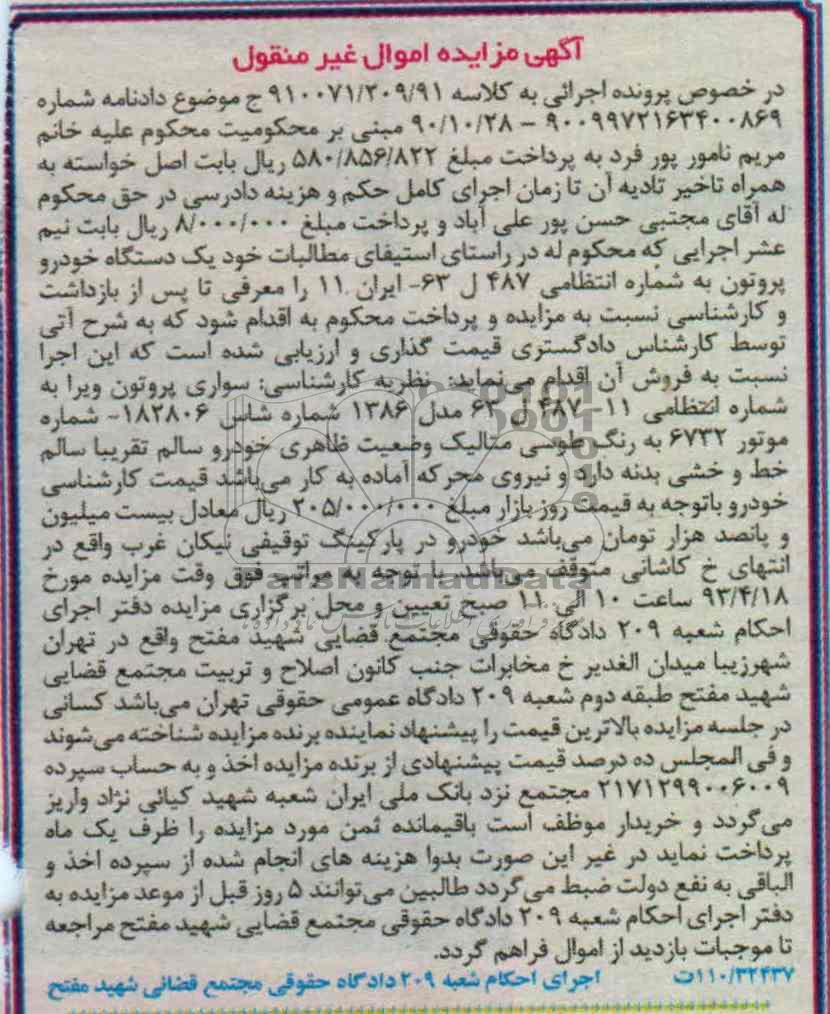 آگهی مزایده اموال غیر منقول
در خصوص پرونده اجرائی به کلاسه ۹۱۰۰۷۱/۲۰۹/۹۱ ج موضوع دادنامه شماره
۹۰۰۹۹۷۲۱۶۳۴۰۰۸۶۹ - ۹۰/۱۰/۲۸ مبنی بر محکومیت محکوم علیه خانم
مریم نامور پور فرد به پرداخت مبلغ ۵۸۰/۸۵۶/۸۲۲ ریال بابت اصل خواسته به
همراه تاخیر تادیه آن تا زمان اجرای کامل حکم و هزینه دادرسی در حق محکوم
له آقای مجتبی حسن پور علی آباد و پرداخت مبلغ ۸/۰۰۰/۰۰۰ ریال بابت نیم
عشر اجرایی که محکوم له در راستای استیفای مطالبات خود یک دستگاه خودرو
پروتون به شماره انتظامی ۴۸۷ ل ۶۳- ایران ۱۱ را معرفی تا پس از بازداشت
و کارشناسی نسبت به مزایده و پرداخت محکوم به اقدام شود که به شرح آتی
توسط کارشناس دادگستری قیمت گذاری و ارزیابی شده است که این اجرا
نسبت به فروش آن اقدام می‌نماید: نظریه کارشناسی: سواری پروتون ویرا به
شماره انتظامی ۱۱- ۴۸۷ ل ۶۳ مدل ۱۳۸۶ شماره شاس ۱۸۲۸۰۶- شماره
موتور ۶۷۳۲ به رنگ طوسی متالیک وضعیت ظاهری خودرو سالم تقریبا سالم
خط و خشی بدنه دارد و نیروی محرکه آماده به کار می‌باشد قیمت کارشناسی
خودرو باتوجه به قیمت روز بازار مبلغ ۲۰۵/۰۰۰/۰۰۰ ریال معادل بیست میلیون
و پانصد هزار تومان می‌باشد خودرو در پارکینگ توقیفی نیکان غرب واقع در
انتهای خ کاشانی متوقف می‌باشد. با توجه به مراتب فوق وقت مزایده مورخ
۹۳/۴/۱۸ ساعت ۱۰ الی ۱۱ صبح تعیین و محل برگزاری مزایده دفتر اجرای
احکام شعبه ۲۰۹ دادگاه حقوقی مجتمع قضایی شهید مفتح واقع در تهران
شهرزیبا میدان الغدیر خ مخابرات جنب کانون اصلاح و تربیت مجتمع قضایی
شهید مفتح طبقه دوم شعبه ۲۰۹ دادگاه عمومی حقوقی تهران می‌باشد کسانی
در جلسه مزایده بالاترین قیمت را پیشنهاد نماینده برنده مزایده شناخته می‌شوند
و فی المجلس ده درصد قیمت پیشنهادی از برنده مزایده اخذ و به حساب سپرده
۲۱۷۱۲۹۹۰۰۶۰۰۹ مجتمع نزد بانک ملی ایران شعبه شهید کیائی نژاد واریز
می‌گردد و خریدار موظف است باقیمانده ثمن مورد مزایده را ظرف یک ماه
پرداخت نماید در غیر این صورت بدوا هزینه های انجام شده از سپرده اخذ و
الباقی به نفع دولت ضبط می‌گردد طالبین می‌توانند ۵ روز قبل از موعد مزایده به
دفتر اجرای احکام شعبه ۲۰۹ دادگاه حقوقی مجتمع قضایی شهید مفتح مراجعه
تا موجبات بازدید از اموال فراهم گردد.
۱۱۰/۳۲۴۳۷ت اجرای احکام شعبه ۲۰۹ دادگاه حقوقی مجتمع قضائی شهید مفتح
ParsNamadData